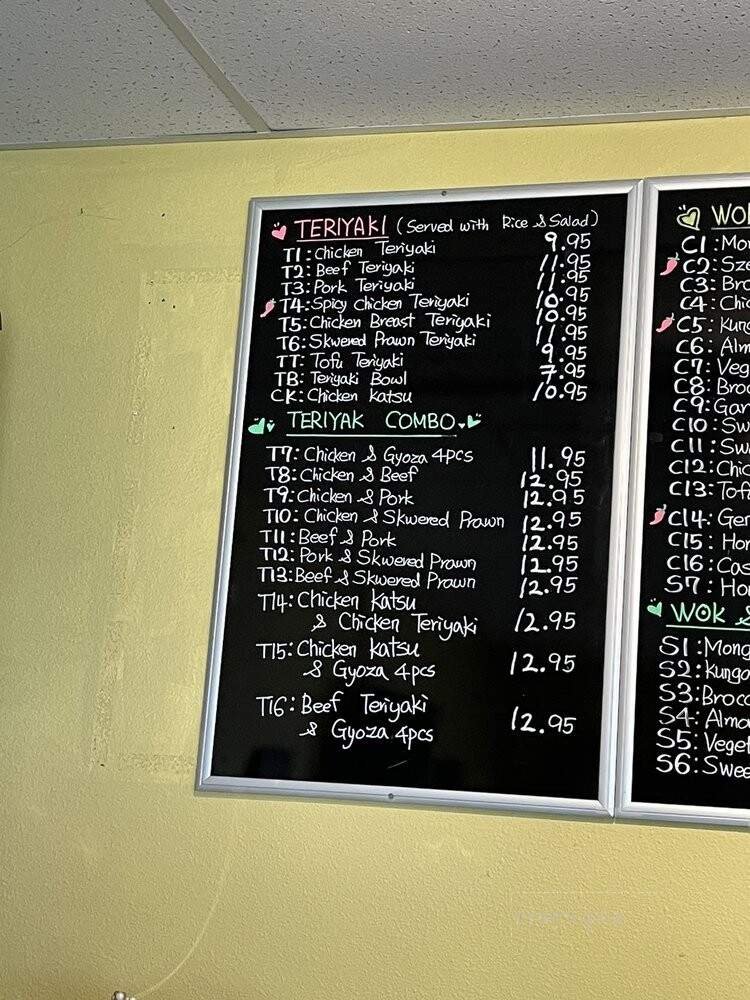 TERIYAKI (Served with Rice & Salad)
T1: Chicken Teriyaki 9.95
T2: Beef Teriyaki 11.95
T3: Pork Teriyaki 11.95
T4: Spicy Chicken Teriyaki 10.95
T5: Chicken Breast Teriyaki 10.95
T6: Skwered Prawn Teriyaki 11.95
TT: Tofu Teriyaki 9.95
TB: Teriyaki Bowl 7.95
CK: Chicken Katsu 10.95
TERIYAK COMBO
T7: Chicken & Gyoza 4pcs 11.95
T8: Chicken & Beef 12.95
T9: Chicken & Pork 12.95
T10: Chicken & Skwered Prawn 12.95
T11: Beef & Pork 12.95
T12: Pork & Skwered Prawn 12.95
T13: Beef & Skwered Prawn 12.95
T14: Chicken Katsu
& Chicken Teriyaki 12.95
T15: Chicken Katsu
& Gyoza 4pcs 12.95
T16: Beef Teriyaki
& Gyoza 4pcs 12.95
WO
C1: Mo
C2: Sze
C3: Bro
C4: Chi
C5: Kung
C6: Alm
C7: Veg
C8: Broc
C9: Gar
C10: Sw
C11: Sw
C12: Chic
C13: Tof
C14: Gen
C15: Hon
C16: Cas
S7: Ho
WOK &
S1: Mong
S2: Kungo
S3: Brocc
S4: Almo
S5: Veget
S6: Swee